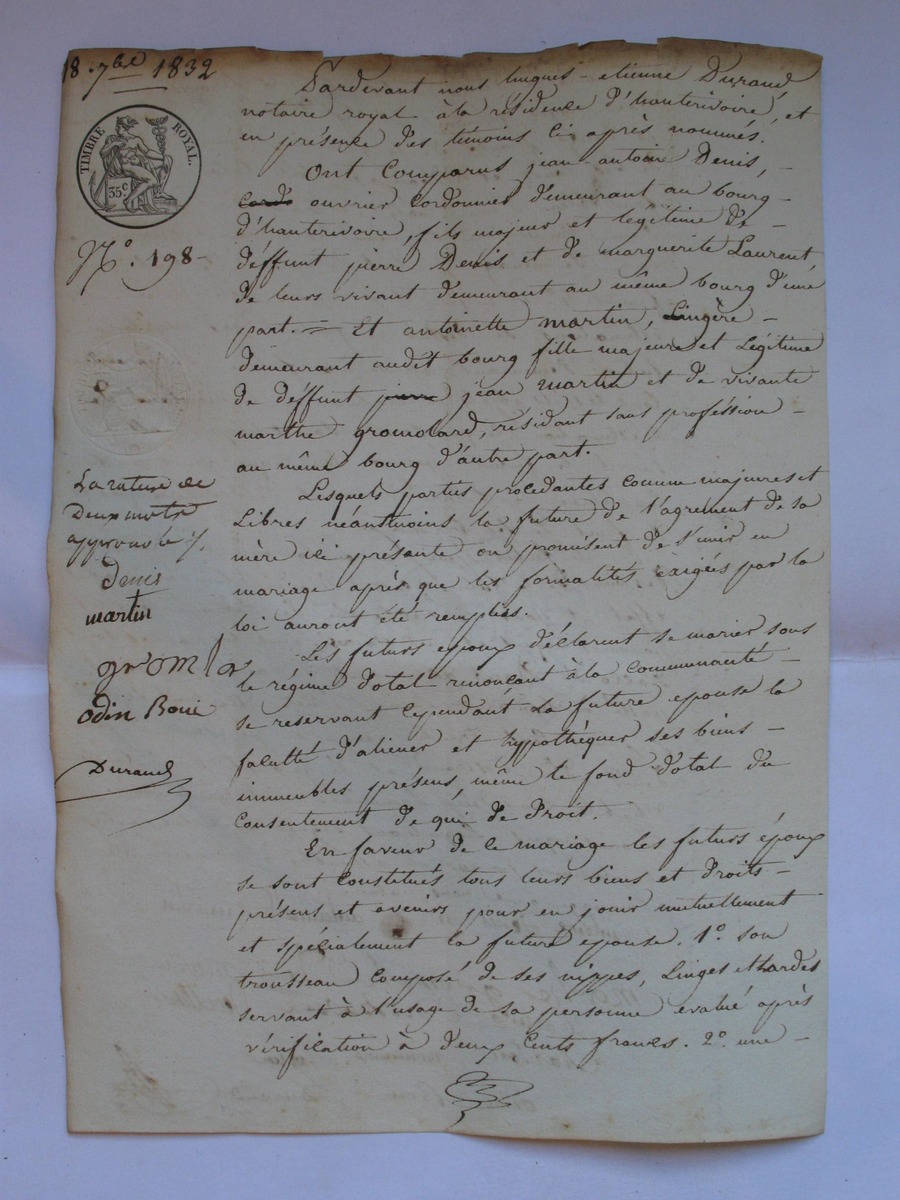 18. 7bre 1832
TIMBRE ROYAL.
35.c
N.o 198-
La rature de
Deux mots
approuvée ./.
Denis
martin
gromla
odin Boni
Durand
Pardevant nous hugues - etienne Durand
notaire royal à la résidence d'hauterivoire, et
en présence des témoins ci après nommés.
Ont Comparus jean antoine Denis, -
Cordo ouvrier cordonnier demeurant au bourg -
d'hauterivoire, fils majeur et légitime de -
déffunt pierre Denis et de marguerite Laurent,
de leurs vivant demeurant au même bourg d'une
part. = Et antoinette martin, Lingère -
demeurant audit bourg fille majeure et Légitime
de déffunt pierre jean martin et de vivante
marthe gromolard, résidant sans proféssion -
au même bourg d'autre part.
Lesquels parties procédantes comme majeures et
Libres néantmoins la future de l'agrement de sa
mère ici présante on promisent de s'unir en
mariage après que les formalités éxigées par la
loi auront été remplies.
Les futurs epoux déclarent se marier sous
le régime dotal renonçant à la communauté -
se reservant cependant la future epouse la
faculté d'aliener et hypothéquer ses biens -
immeubles présens, même le fond dotal du
Consentement de qui de Droit.
En faveur de ce mariage les futurs époux
se sont constitués tous leurs biens et Droits -
présens et avenirs pour en jouir mutuellement
et spécialement la future epouse. 1.o son
trousseau composé de ses nippes, Linges et hardes
servant à l'usage de sa personne evalué après
vérification à deux Cents francs. 2.o une -